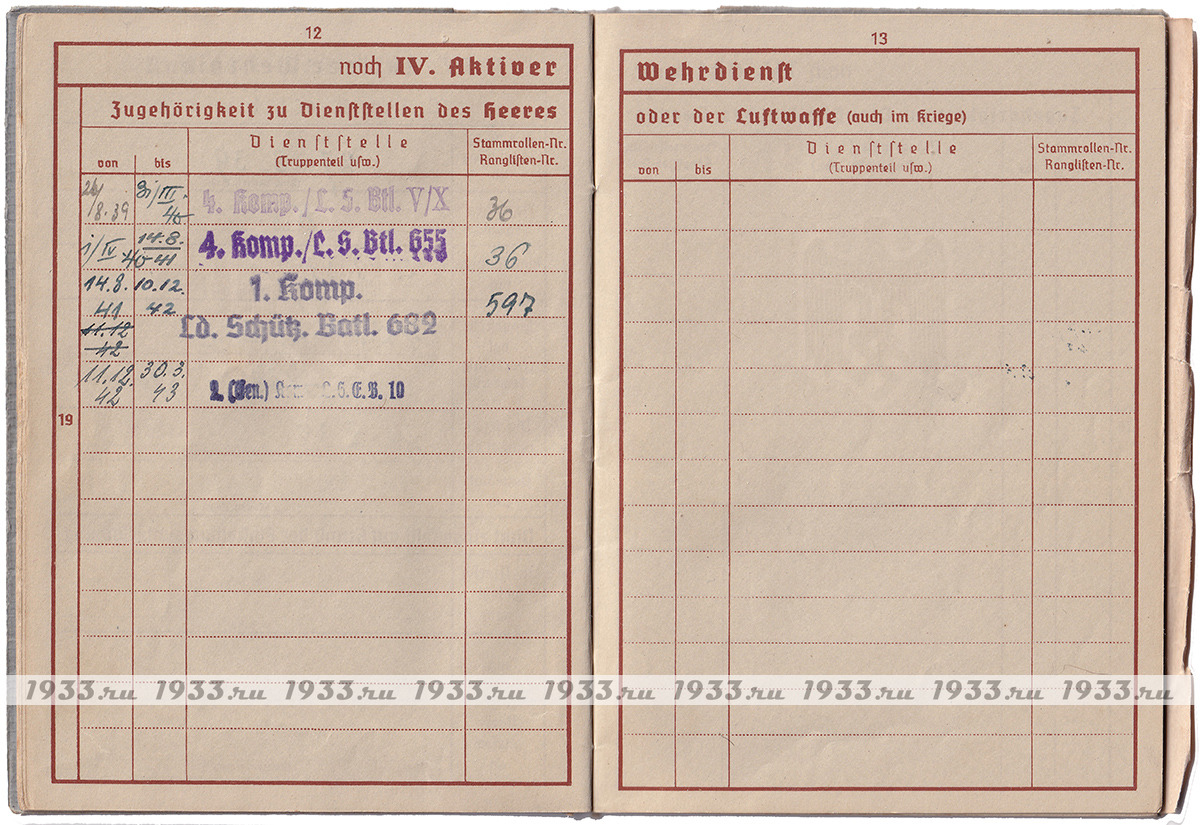 12
noch IV. Aktiver
Zugehörigkeit zu Dienststellen des Heeres
von
bis
Dienststelle
(Truppenteil usw.)
Stammrollen-Nr.
Ranglisten-Nr.
26/8.39
31/III.40
4. Komp./L. S. Btl. V/X
36
1/IV 40
14.8.41
4. Komp./L. S. Btl. 655
36
14.8.41
10.12.42
1. Komp.
Ld. Schütz. Batl. 682
597
11.12
42
11.12.42
30.3.43
2. (Gen.) L. S. E. B. 10
19
13
Wehrdienst
oder der Luftwaffe (auch im Kriege)
von
bis
Dienststelle
(Truppenteil usw.)
Stammrollen-Nr.
Ranglisten-Nr.
1933.ru 1933.ru 1933.ru 1933.ru 1933.ru 1933.ru 1933.ru 1933.ru 1933.ru